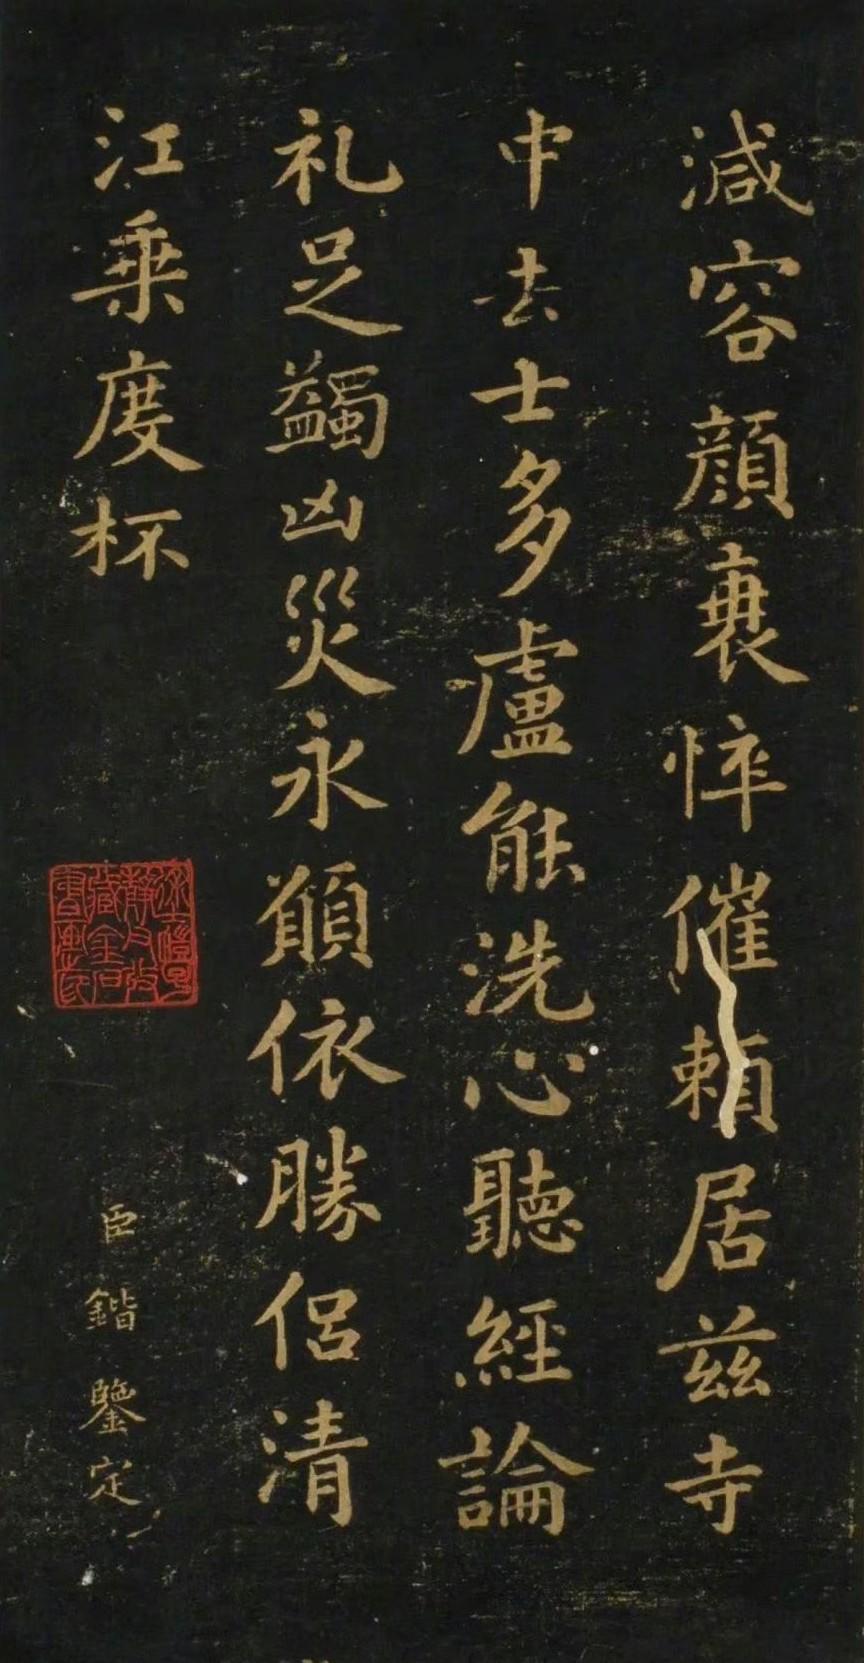 減容顔衰悴催頼居兹寺
中法士多盧能洗心聽經論
礼足蠲凶災永願依勝侶清
江乗度杯
臣鍇鑒定